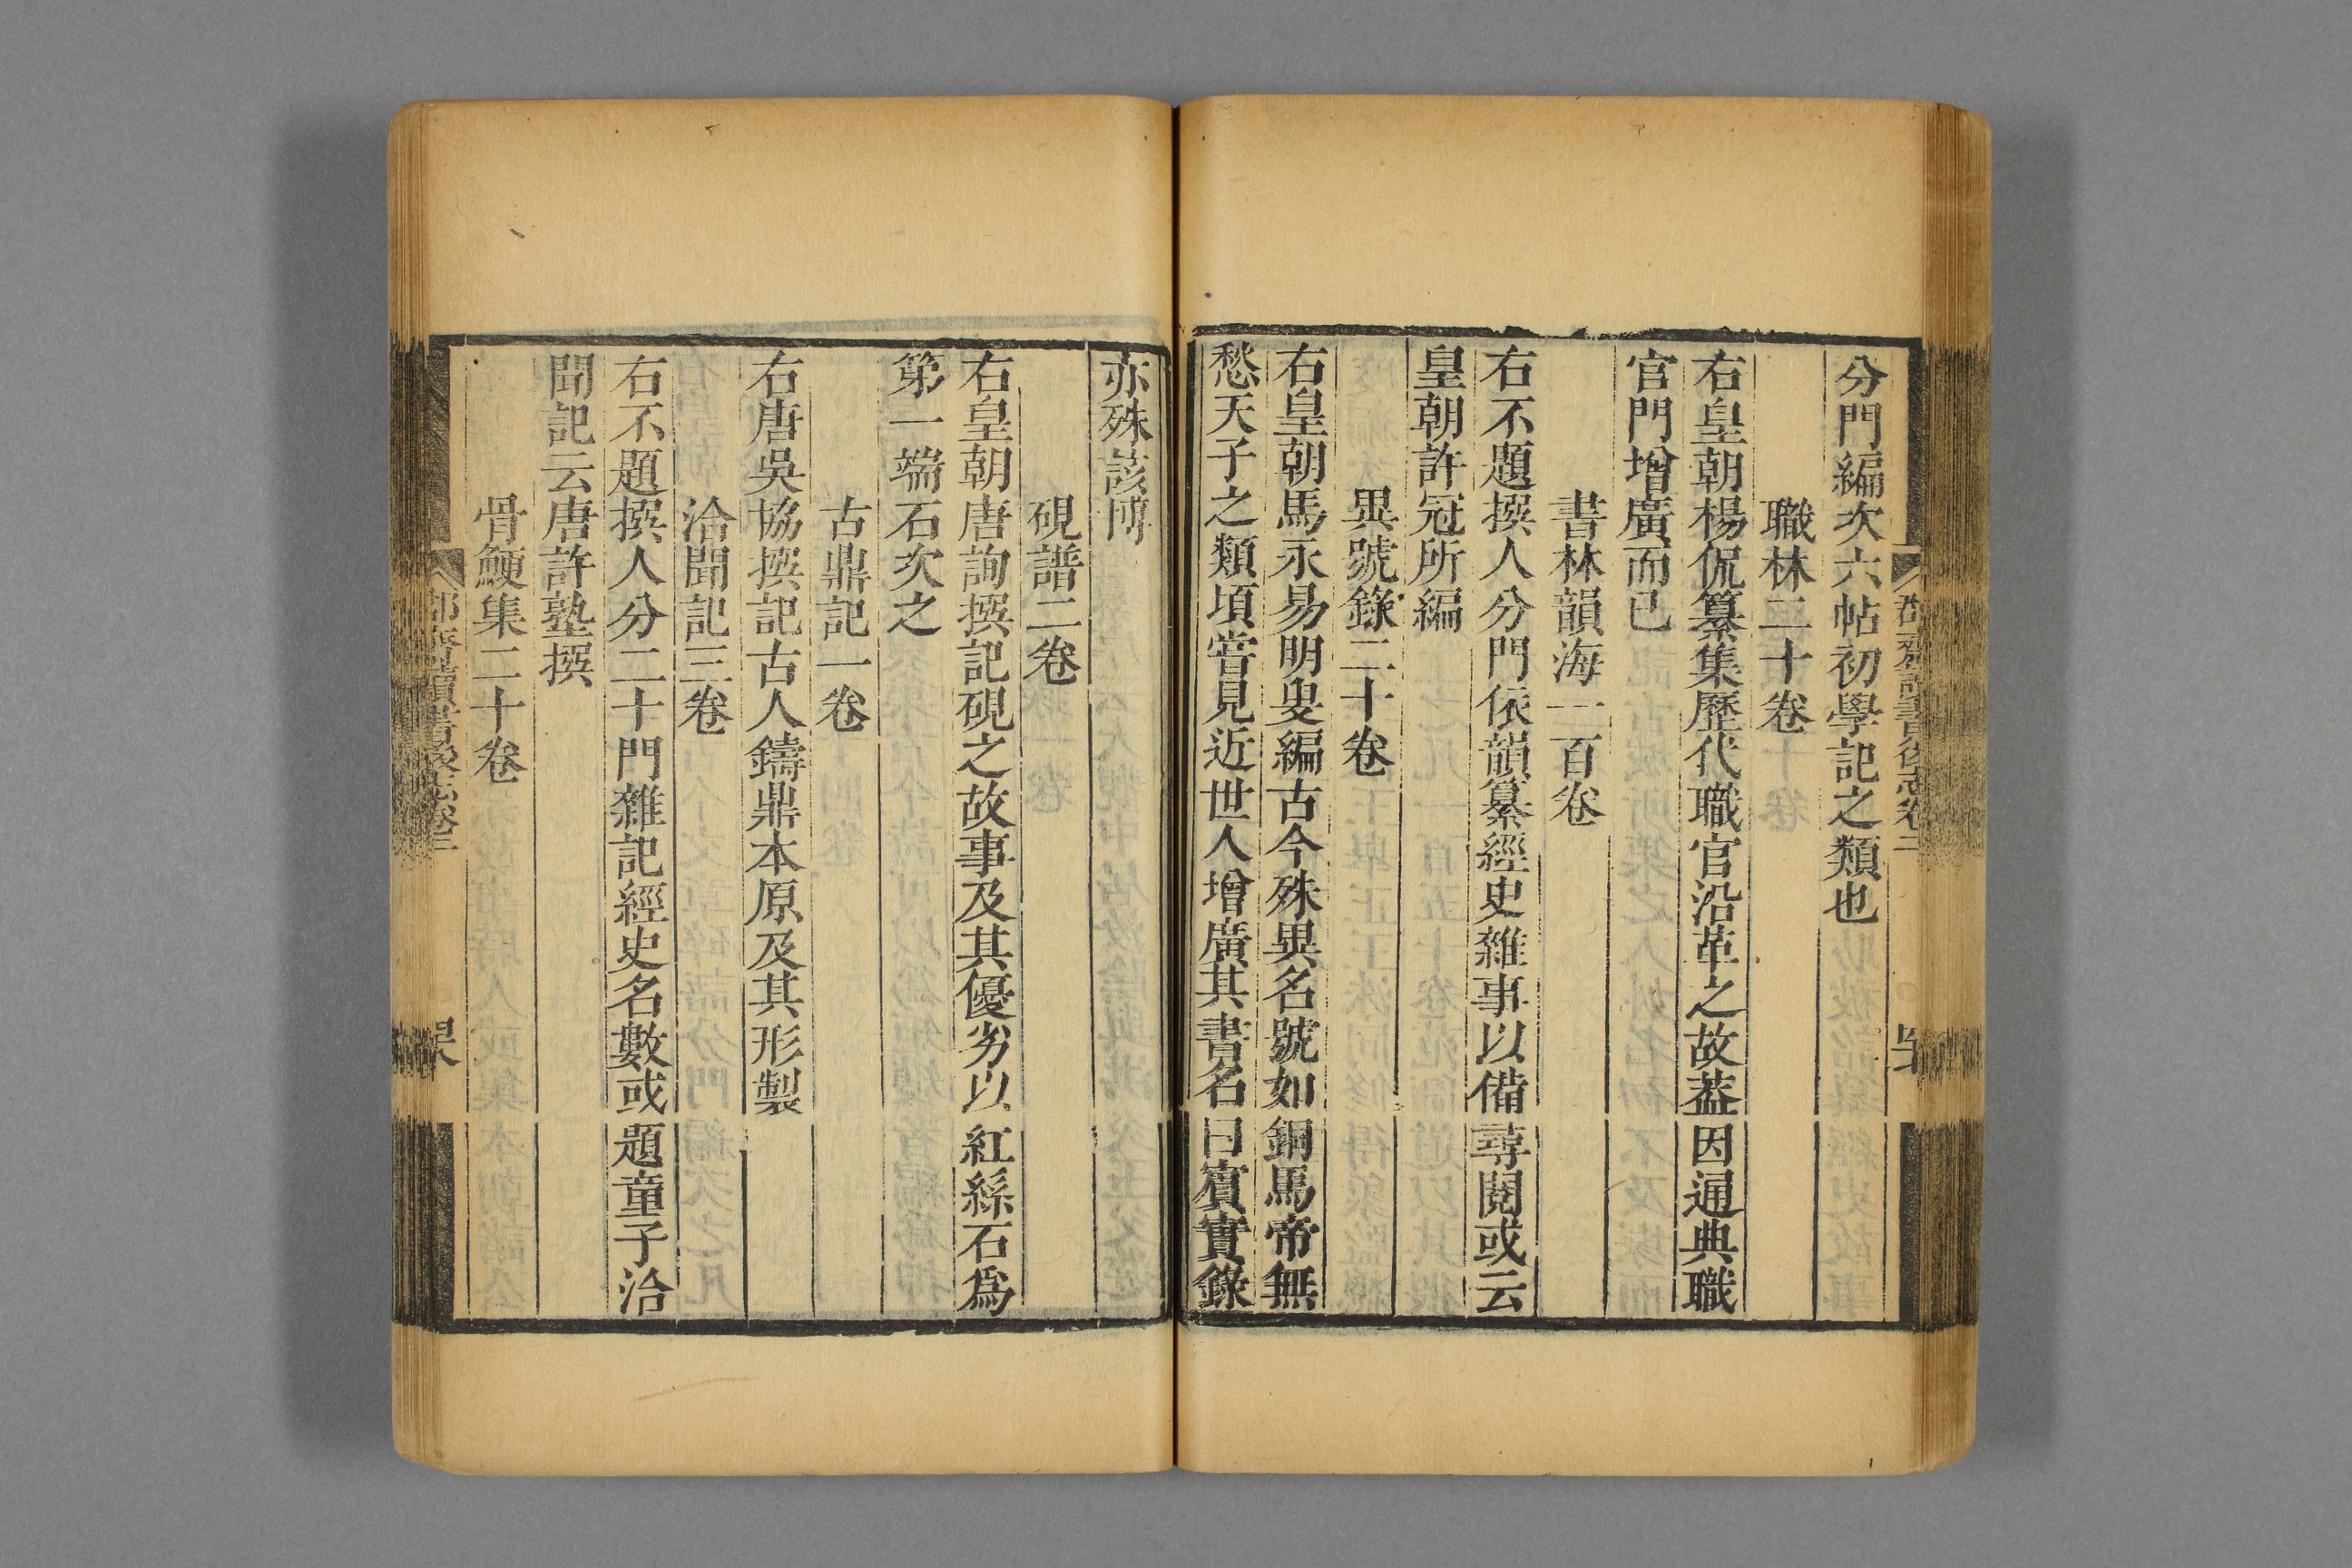 分門編次六帖初學記之類也
職林三十卷
右皇朝楊侃纂集歷代職官沿革之故葢因通典職
官門增廣而已
書林韻海一百卷
右不題撰人分門依韻纂經史雜事以備尋閱或云
皇朝許冠所編
異號錄二十卷
右皇朝馬永易明叟編古今殊異名號如銅馬帝無
愁天子之類頃嘗見近世人增廣其書名曰賓實錄
亦殊該博
硯譜二卷
右皇朝唐詢撰記硯之故事及其優劣以紅絲石爲
第一端石次之
古鼎記一卷
右唐吳協撰記古人鑄鼎本原及其形製
洽聞記三卷
右不題撰人分二十門雜記經史名數或題童子洽
聞記云唐許塾撰
骨鯁集二十卷